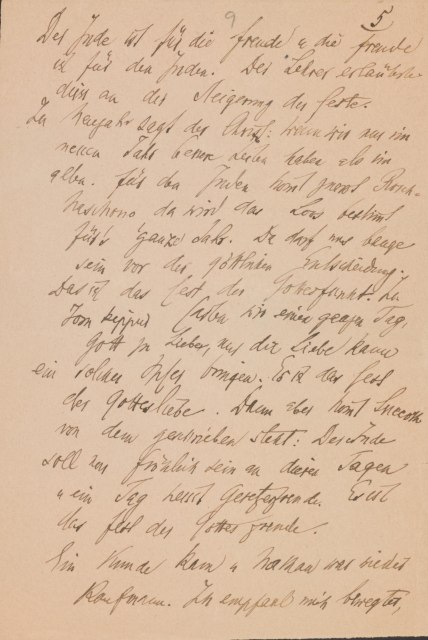 9 5
Der Jude ist für die Freude u die Freude
ist für den Juden. Der Lehrer erläuterte
dies an der Steigerung der Feste.
Zu Neujahr sagt der Christ: wenn wir nur im
neuen Jahr Leben haben als im
alten. Für den Juden kommt zuerst Rosch-
haschono da wird das Los bestimmt
fürs ganze Jahr. Da darf uns bange
sein vor der göttlichen Entscheidung.
Das ist das Fest der Gottesfurcht. Zu
Jom kippur fasten wir einen ganzen Tag,
Gott zu Liebe, nur die Liebe kann
ein solches Opfer bringen. Es ist das Fest
der Gottesliebe. Dann aber kommt Succoth
von dem geschrieben steht: Der Jude
soll nur fröhlich sein an diesen Tagen
u ein Tag heisst Gesetzesfreude. Es ist
das Fest der Gottesfreude.
Ein Kunde kam u Nathan war wieder
Kaufmann. Ich empfahl mich bewegter,